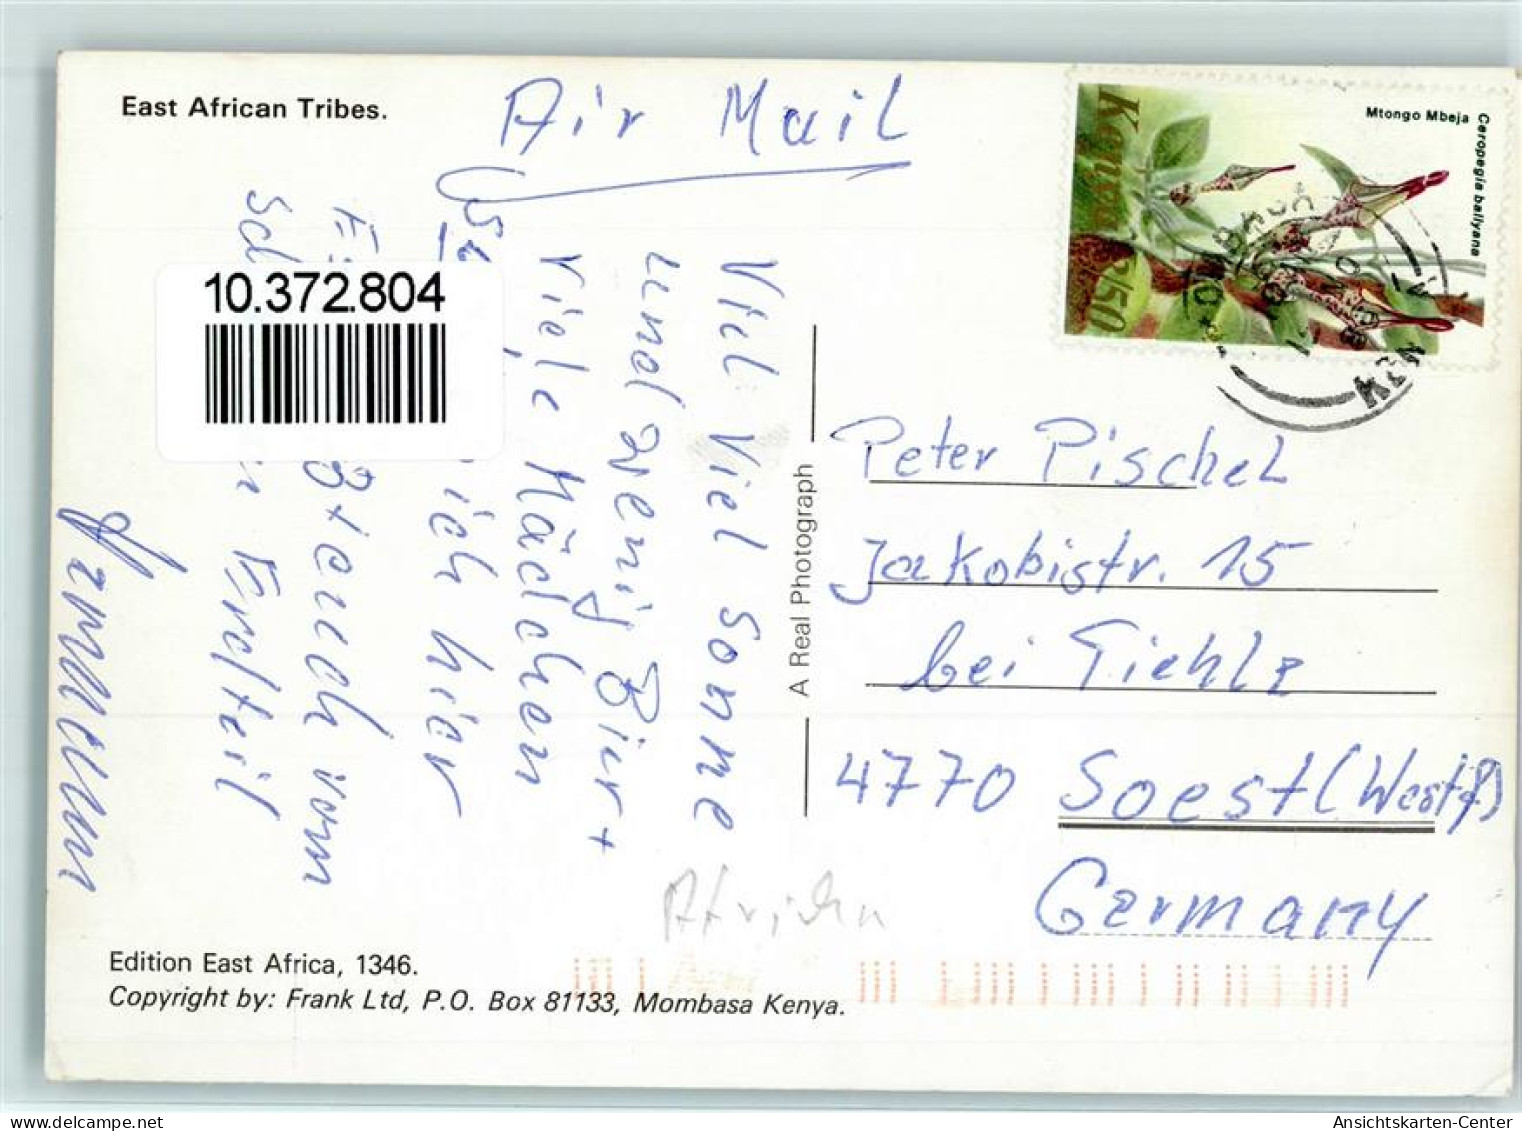 East African Tribes.
Air Mail
Viel Viel Sonne
und wenig Bier +
Viele Mädchen
ich hier
euch vom
Sch n Erdteil
10.372.804
A Real Photograph
Kenya
3/50
Mtongo Mbeja
Ceropegia ballyana
Peter Pischel
Jakobistr. 15
bei Tiehle
4770 Soest (Westf)
Germany
Afrika
Edition East Africa, 1346.
Copyright by: Frank Ltd, P.O. Box 81133, Mombasa Kenya.
Ansichtskarten-Center